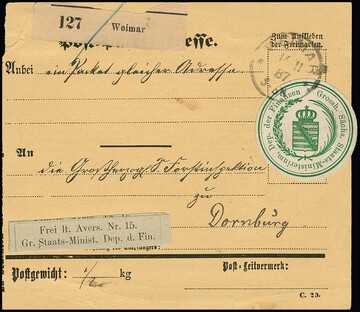 127 Weimar
Zum Aufkleben
der Freimarken.
Anbei ein Packet gleicher Adresse
Grossh. Sächs. Staats-Ministerium, Dep. der Finanzen
An
die Grossherzogl. S. Forstinspektion
zu
Dornburg
Frei lt. Avers. Nr. 15.
Gr. Staats-Minist. Dep. d. Fin.
Postgewicht: kg
Post-Leitvermerk:
C. 25.